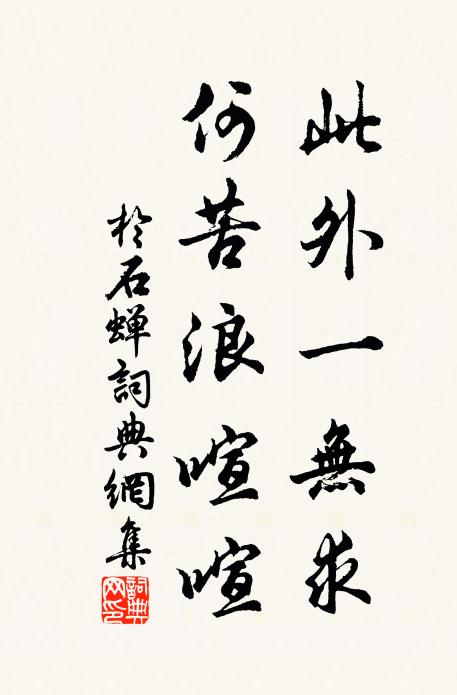 此外一無求
何苦浪喧喧
於石蝉詞典網集
詞典
网印